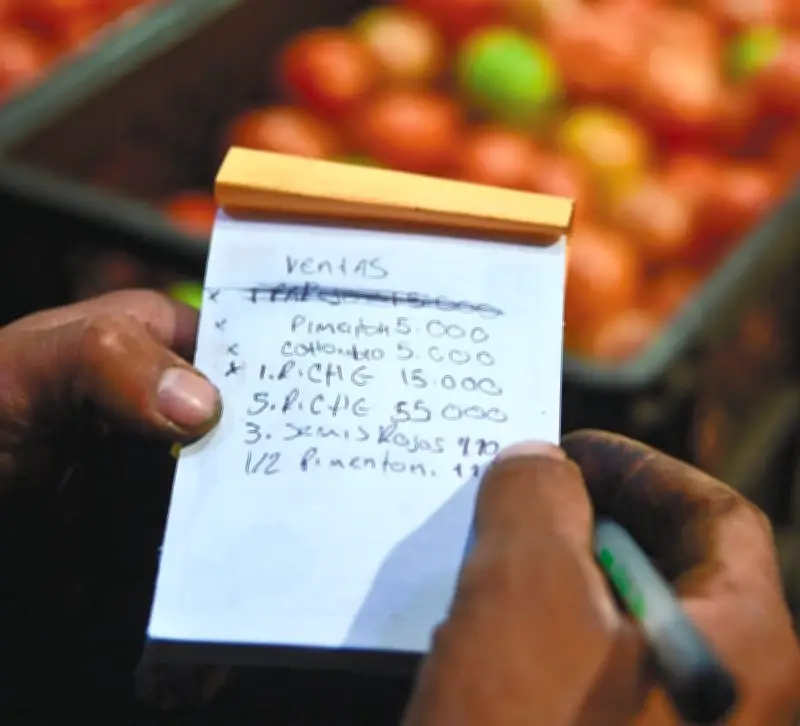 Ventas
x
x Pimenton 5.000
x 5.000
x 1. P.CHG 15.000
5. P.CHG 55000
3. semis Rojos
1/2 Pimenton.